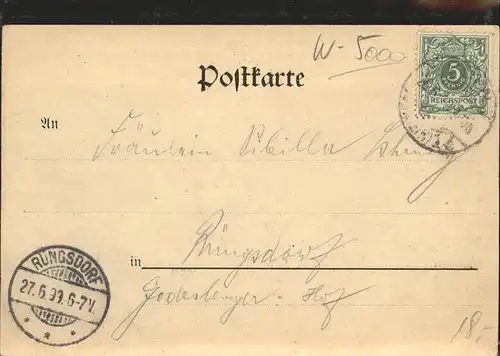 W-5000
Postkarte
5
REICHSPOST
An
Fräulein Sibilla
in Rüngsdorf
Godesberger-Hof
RÜNGSDORF
27.6.99.6-7V.
18,-